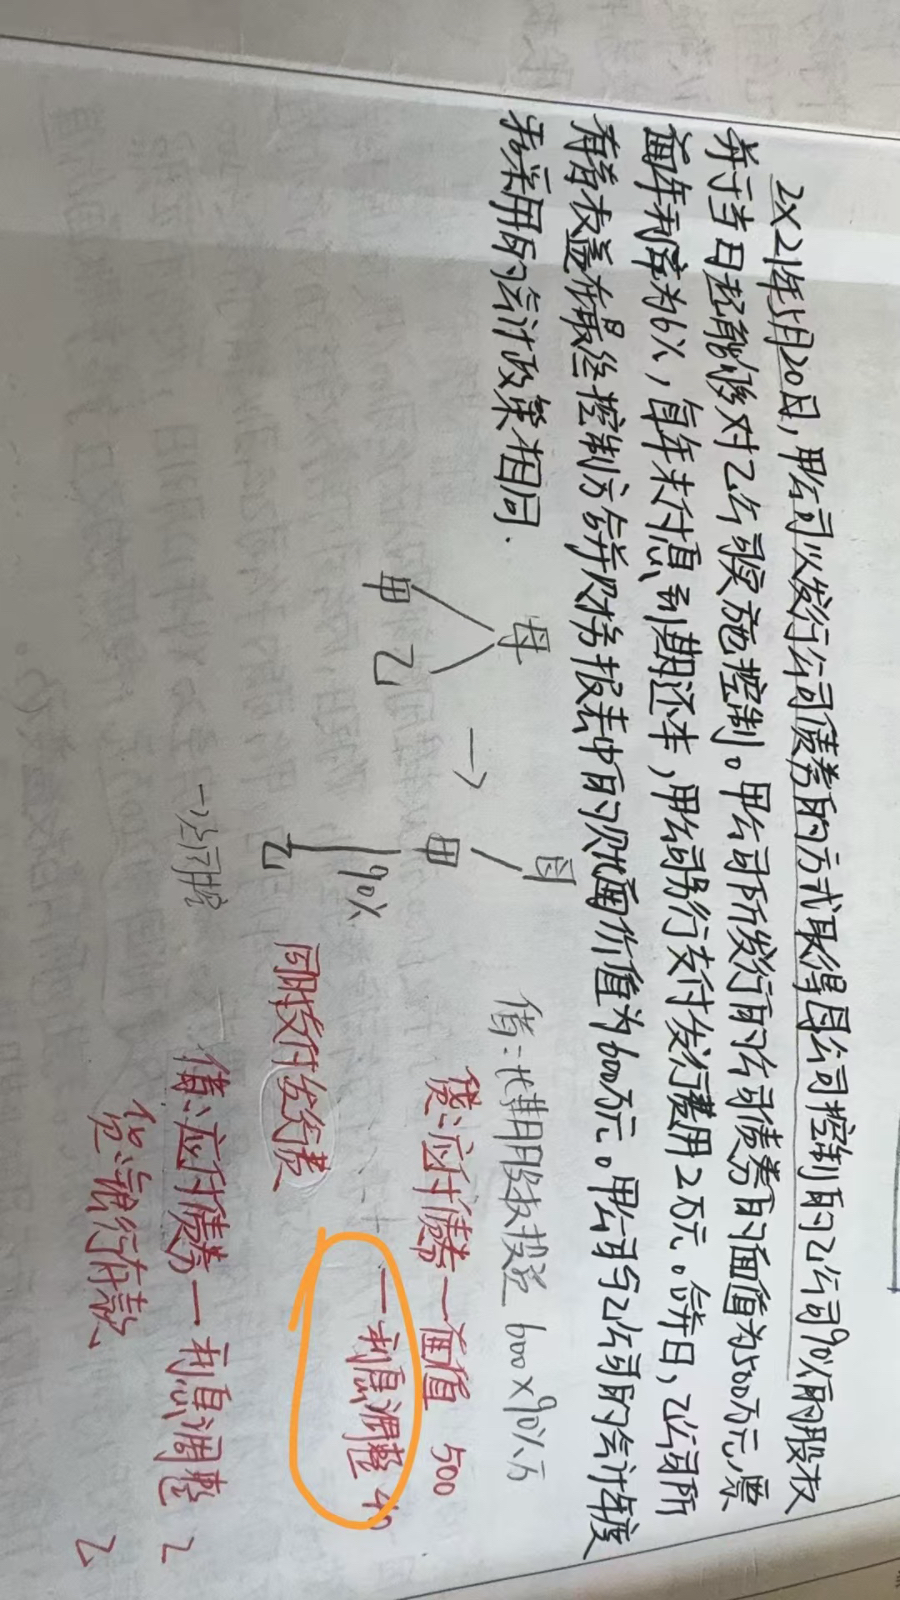 2X21年5月20日，甲公司以发行公司债券的方式取得母公司控制的乙公司90%的股权
并于当日起能够对乙公司实施控制。甲公司所发行的公司债券的面值为500万元，票
面年利率为6%，每年末付息到期还本，甲公司另行支付发行费用2万元。合并日，乙公司所
有者权益在最终控制方合并财务报表中的账面价值为600万元。甲公司与乙公司的会计年度
和采用的会计政策相同.
母
甲 乙
→
母
甲
90%
乙
→同控
借：长期股权投资 600×90%
贷：应付债券—面值 500
—利息调整 40
同时支付发行费
借：应付债券—利息调整 2
贷：银行存款 2